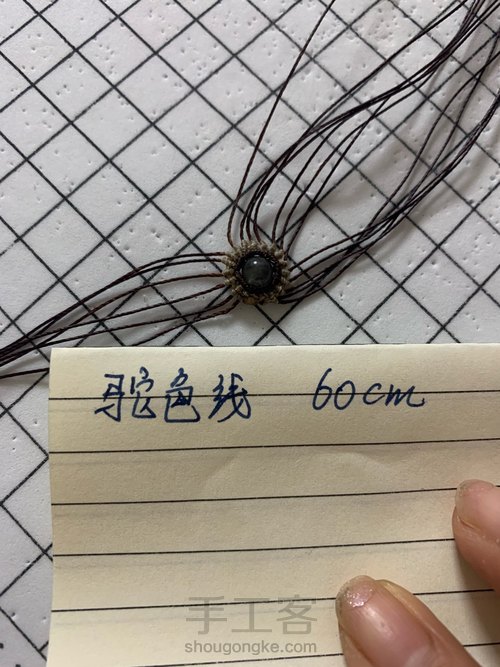 驼色线 60cm
手工客
shougongke.com